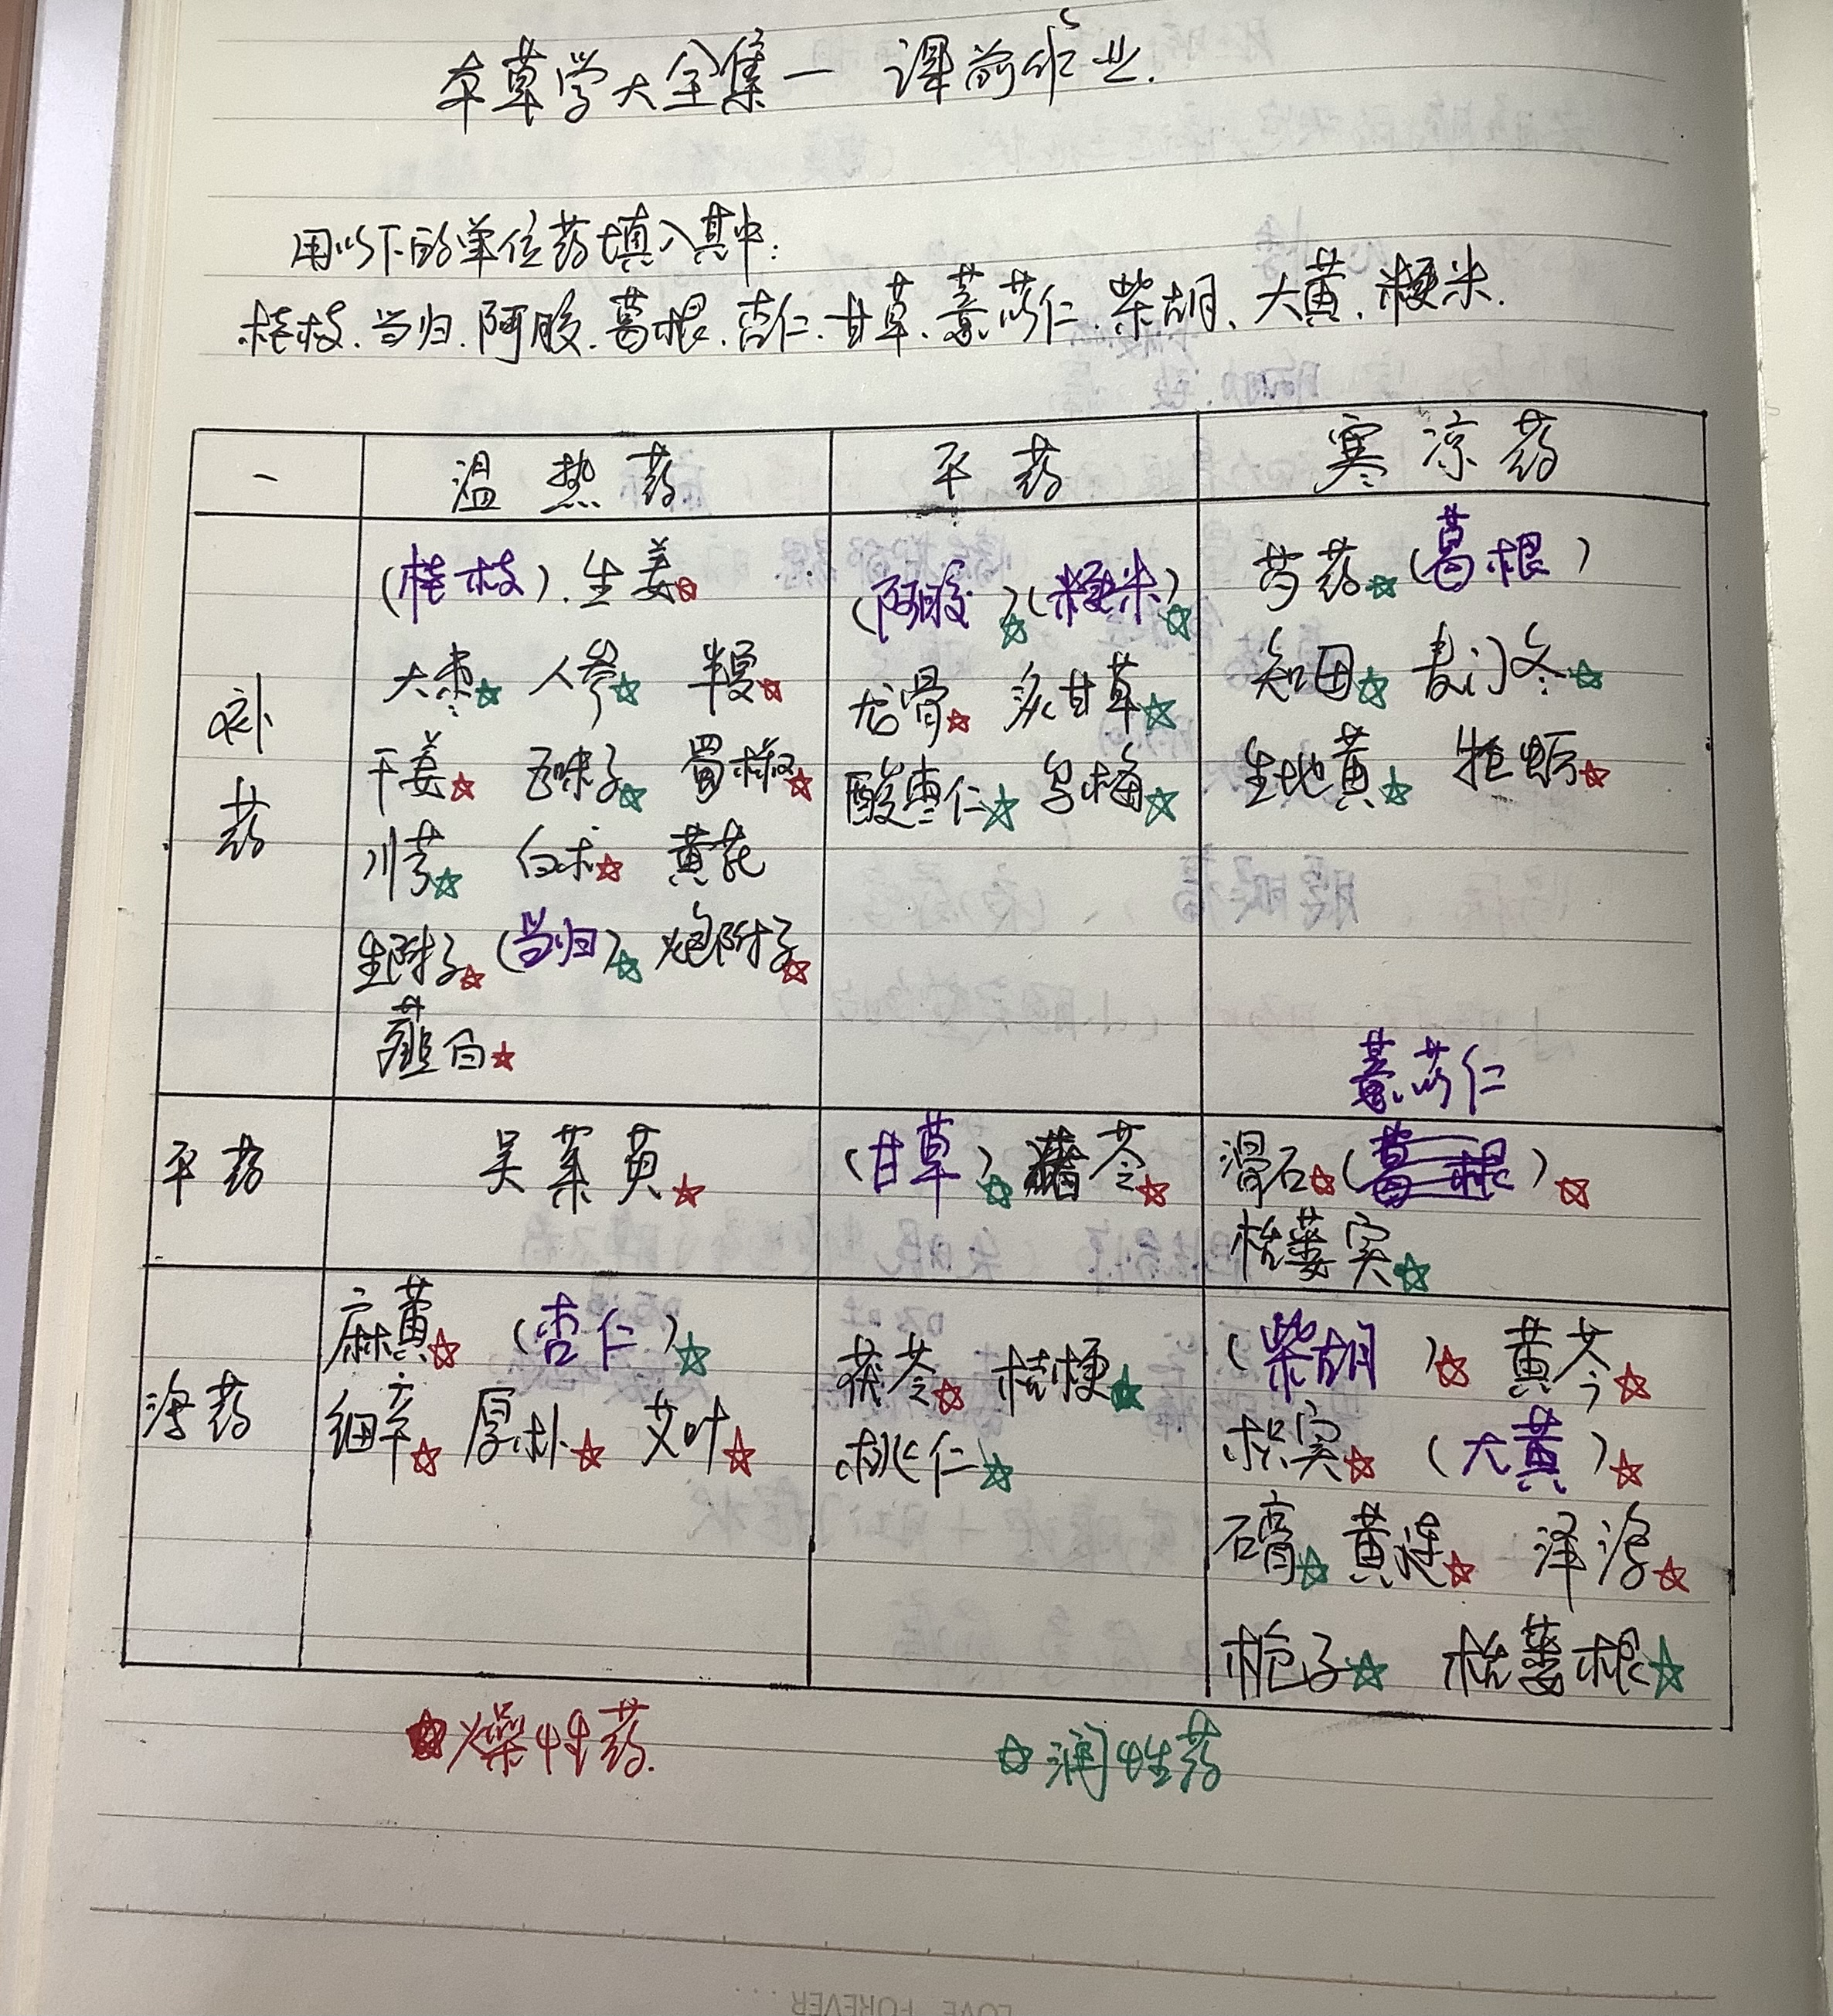 本草学大全集一 课前作业.
用以下的单位药填入其中:
桂枝.当归.阿胶.葛根.杏仁.甘草.薏苡仁.柴胡、大黄.粳米.
一 温热药 平药 寒凉药
补药
(桂枝).生姜☆
大枣☆ 人参☆ 半夏☆
干姜☆ 五味子☆ 蜀椒☆
川芎☆ 白术☆ 黄芪
生附子☆ (当归)☆ 炮附子☆
薤白☆
(阿胶)☆(粳米)☆
龙骨☆ 炙甘草☆
酸枣仁☆ 乌梅☆
芍药☆(葛根)
知母☆ 麦门冬☆
生地黄☆ 牡蛎☆
薏苡仁
平药
吴茱萸☆
(甘草)☆ 猪苓☆
滑石☆(葛根)☆
栝蒌实☆
泻药
麻黄☆ (杏仁)☆
细辛☆ 厚朴☆ 艾叶☆
茯苓☆ 桔梗☆
桃仁☆
(柴胡)☆ 黄芩☆
枳实☆ (大黄)☆
石膏☆ 黄连☆ 泽泻☆
栀子☆ 栝蒌根☆
☆燥性药. ☆润性药
LOVE FOREVER...